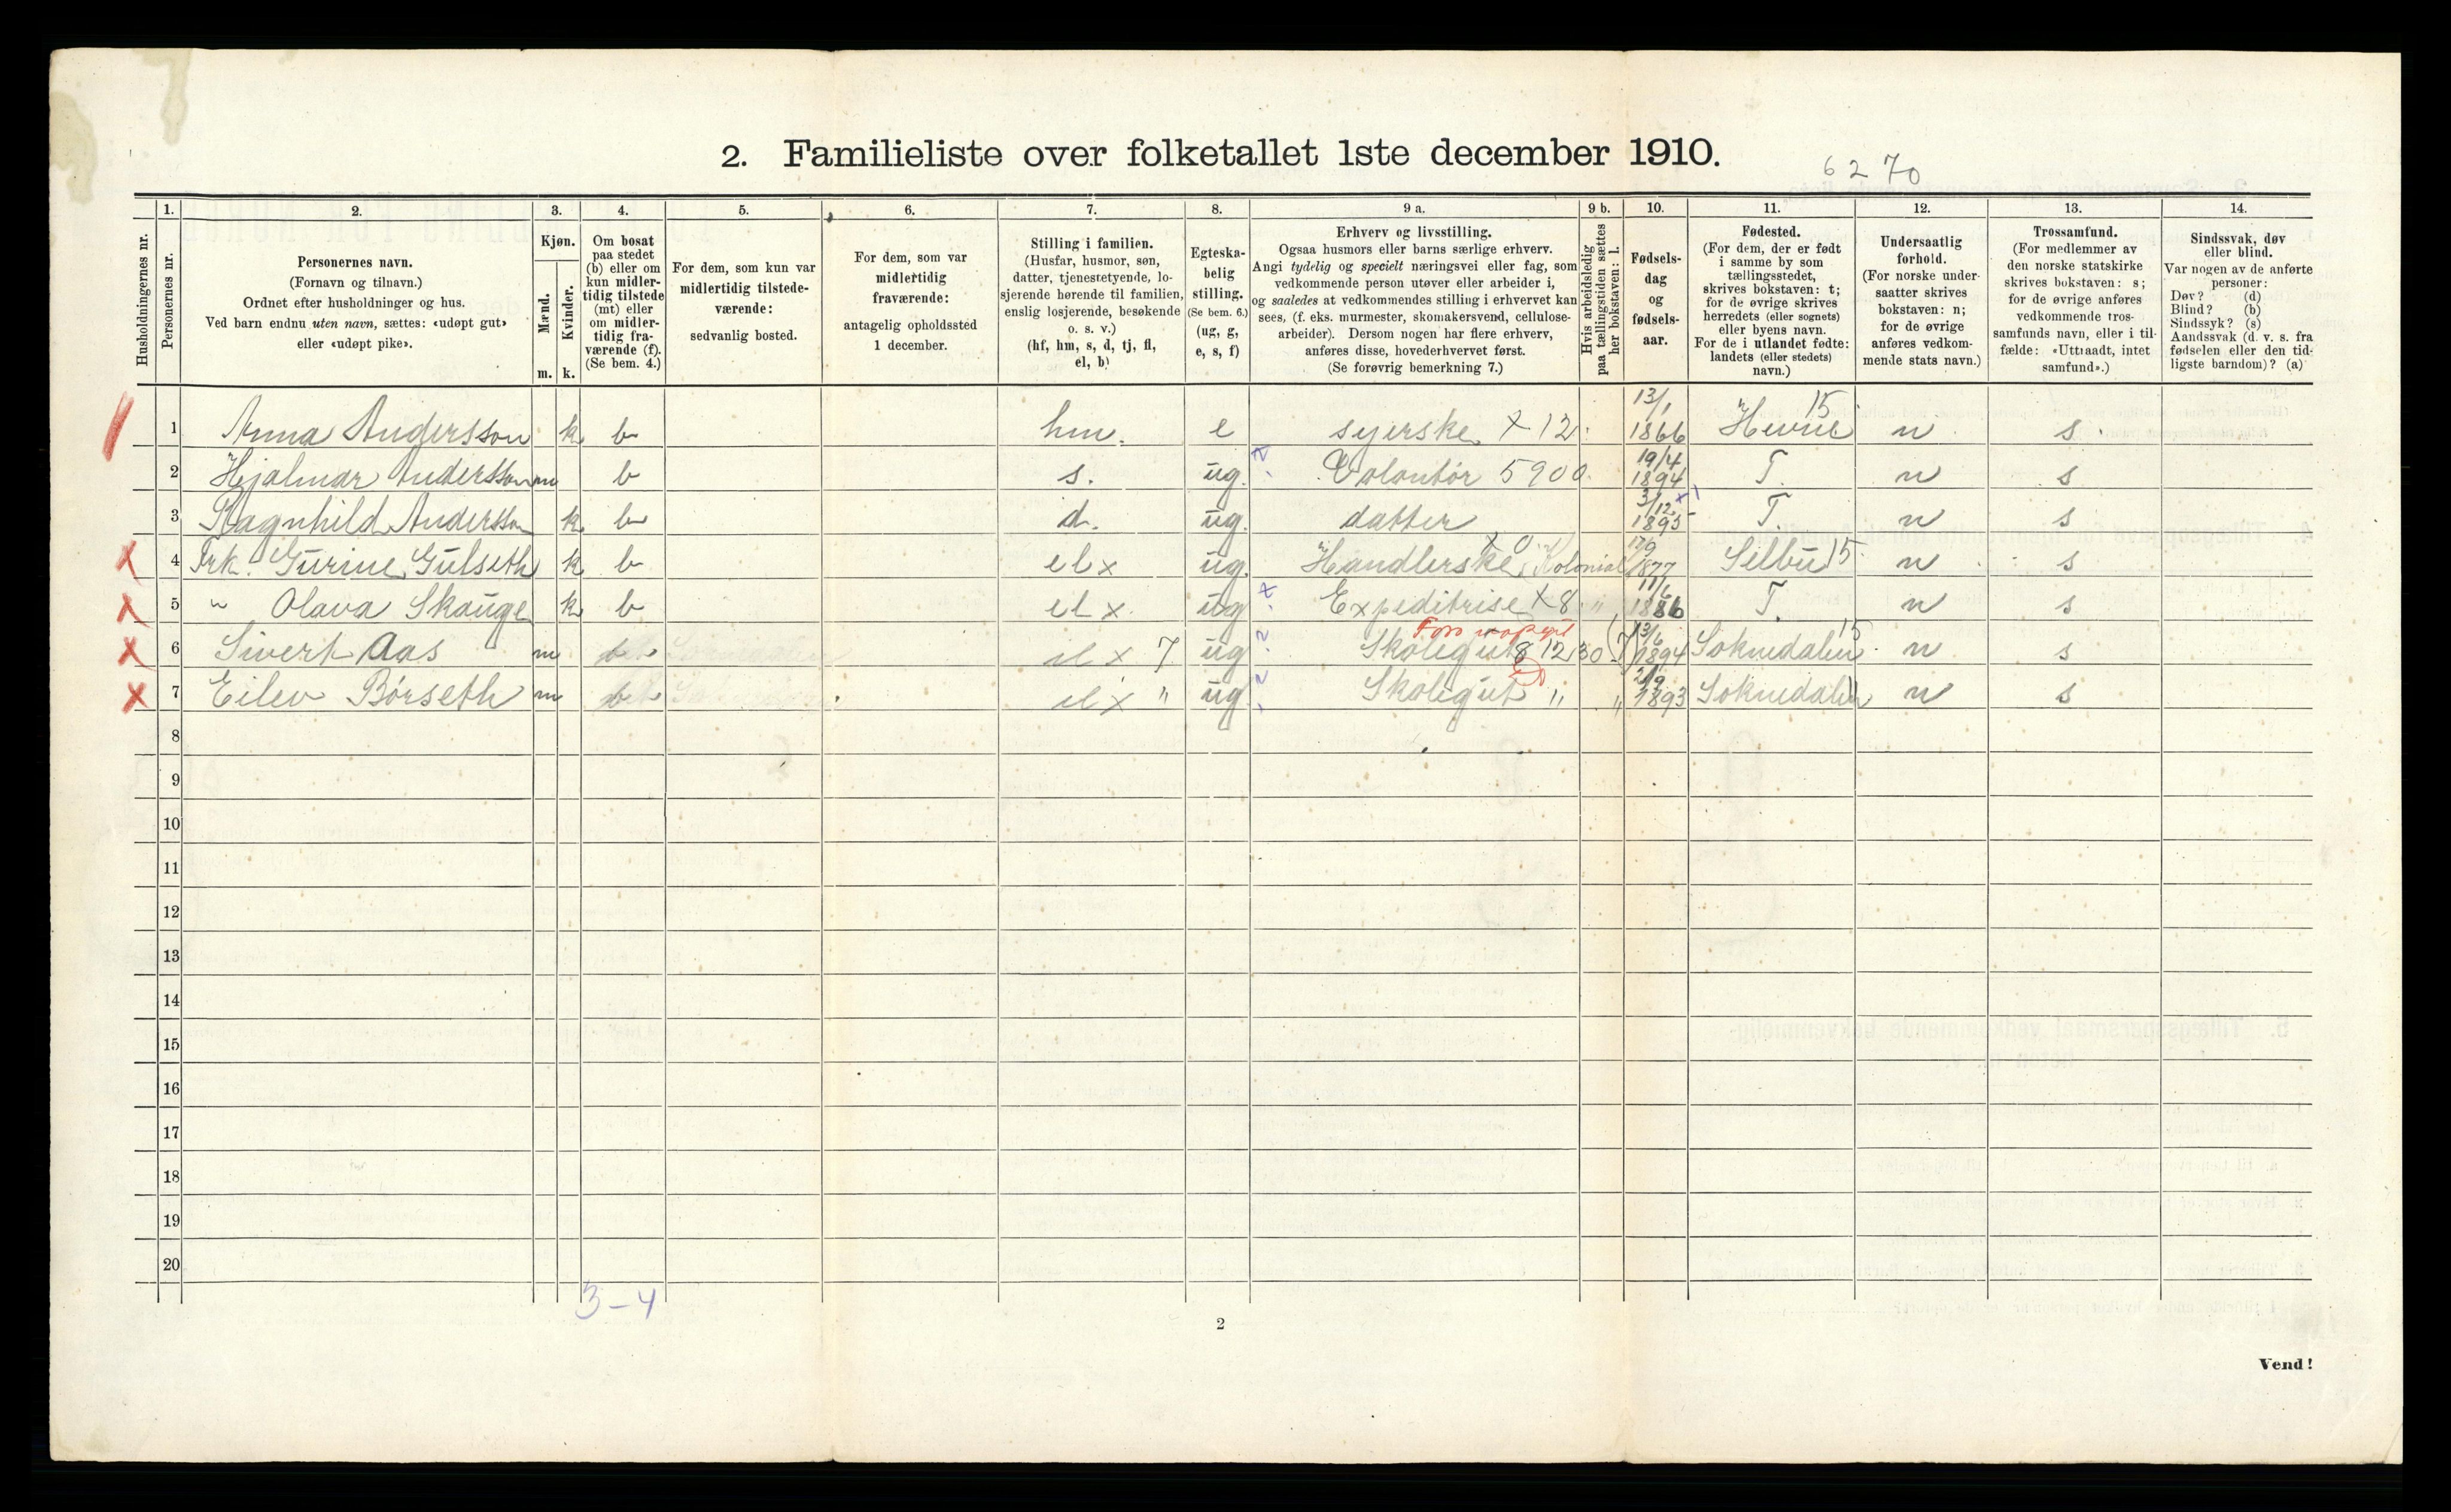 2. Familieliste over folketallet 1ste december 1910.
6270
Husholdningernes nr.
1. Personernes nr.
2. Personernes navn.
(Fornavn og tilnavn.)
Ordnet efter husholdninger og hus.
Ved barn endnu uten navn, sættes: «udøpt gut»
eller «udøpt pike».
3. Kjøn.
Mænd. m.
Kvinder. k.
4. Om bosat
paa stedet
(b) eller om
kun midler-
tidig tilstede
(mt) eller
om midler-
tidig fra-
værende (f).
(Se bem. 4.)
5. For dem, som kun var
midlertidig tilstede-
værende:
sedvanlig bosted.
6. For dem, som var
midlertidig
fraværende:
antagelig opholdssted
1 december.
7. Stilling i familien.
(Husfar, husmor, søn,
datter, tjenestetyende, lo-
sjerende hørende til familien,
enslig losjerende, besøkende
o. s. v.)
(hf, hm, s, d, tj, fl,
el, b)
8. Egteska-
belig
stilling.
(Se bem. 6.)
(ug, g,
e, s, f)
9 a. Erhverv og livsstilling.
Ogsaa husmors eller barns særlige erhverv.
Angi tydelig og specielt næringsvei eller fag, som
vedkommende person utøver eller arbeider i,
og saaledes at vedkommendes stilling i erhvervet kan
sees, (f. eks. murmester, skomakersvend, cellulose-
arbeider). Dersom nogen har flere erhverv,
anføres disse, hovederhvervet først.
(Se forøvrig bemerkning 7.)
9 b. Hvis arbeidsledig
paa tællingstiden sættes
her bokstaven: l.
10. Fødsels-
dag
og
fødsels-
aar.
11. Fødested.
(For dem, der er født
i samme by som
tællingsstedet,
skrives bokstaven: t;
for de øvrige skrives
herredets (eller sognets)
eller byens navn.
For de i utlandet fødte:
landets (eller stedets)
navn.)
12. Undersaatlig
forhold.
(For norske under-
saatter skrives
bokstaven: n;
for de øvrige
anføres vedkom-
mende stats navn.)
13. Trossamfund.
(For medlemmer av
den norske statskirke
skrives bokstaven: s;
for de øvrige anføres
vedkommende tros-
samfunds navn, eller i til-
fælde: «Uttraadt, intet
samfund».)
14. Sindssvak, døv
eller blind.
Var nogen av de anførte
personer:
Døv? (d)
Blind? (b)
Sindssyk? (s)
Aandssvak (d. v. s. fra
fødselen eller den tid-
ligste barndom)? (a)
1 Anna Andersson k b hm. e syerske x 12 13/1 1866 Hevne 15 n s.
2 Hjalmar Andersson m b s. ug. Volontør 5900 19/4 1894 T. n s
3 Ragnhild Andersson k b d. ug. datter 3/12 1895 T. n s
4 Frk. Gurine Gulseth k b el x ug. Handlerske Kolonial x 0 17/9 1877 Selbu 15 n s
5 " Olava Skauge k b el x ug Expeditrise x 8 " 11/6 1886 T. n s
6 Sivert Aas m b el x 7 ug Skolegut 8 12 30 13/6 1894 Soknedalen 15 n s
7 Eilev Børseth m b el x " ug Skolegut " " 2/9 1893 Soknedalen " n s
8
9
10
11
12
13
14
15
16
17
18
19
20
3-4
2
Vend!